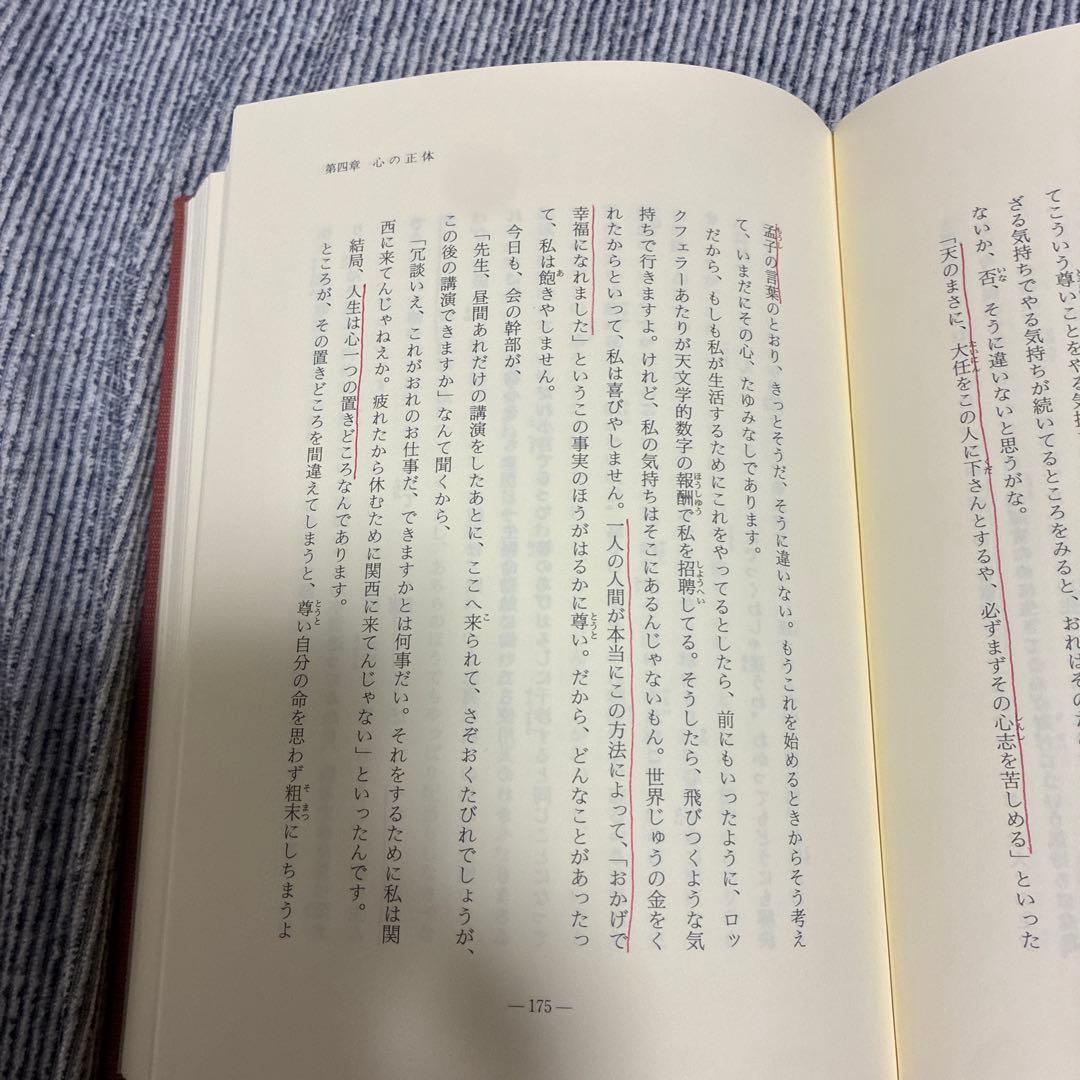 てこういう尊いことをやる気持
ざる気持ちでやる気持ちが続いてるところをみると、おれはその
ないか、否、そうに違いないと思うがな。
「天のまさに、大任をこの人に下さんとするや、必ずまずその心志を苦しめる」といった
第四章 心の正体
孟子の言葉のとおり、きっとそうだ、そうに違いない。もうこれを始めるときからそう考え
て、いまだにその心、たゆみなしであります。
だから、もしも私が生活するためにこれをやってるとしたら、前にもいったように、ロッ
クフェラーあたりが天文学的数字の報酬で私を招聘してる。そうしたら、飛びつくような気
持ちで行きますよ。けれど、私の気持ちはそこにあるんじゃないもん。世界じゅうの金をく
れたからといって、私は喜びやしません。一人の人間が本当にこの方法によって、「おかげで
幸福になれました」というこの事実のほうがはるかに尊い。だから、どんなことがあったっ
て、私は飽きやしません。
今日も、会の幹部が、
「先生、昼間あれだけの講演をしたあとに、ここへ来られて、さぞおくたびれでしょうが、
この後の講演できますか」なんて聞くから、
「冗談いえ、これがおれのお仕事だ、できますかとは何事だい。それをするために私は関
西に来てんじゃねえか。疲れたから休むために関西に来てんじゃない」といったんです。
結局、人生は心一つの置きどころなんであります。
ところが、その置きどころを間違えてしまうと、尊い自分の命を思わず粗末にしちまうよ
—175—